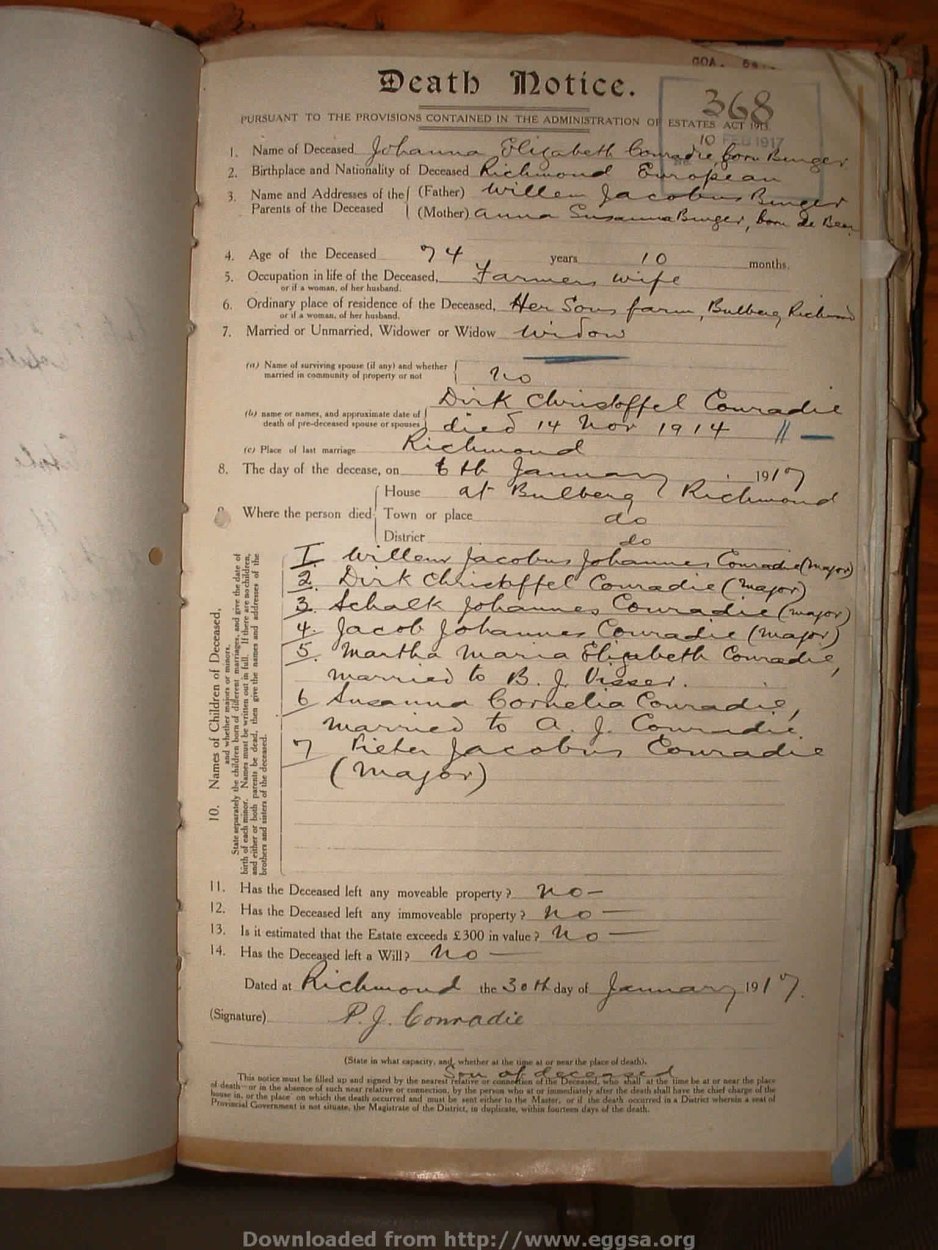 GOA.
Death Notice.
368
PURSUANT TO THE PROVISIONS CONTAINED IN THE ADMINISTRATION OF ESTATES ACT 1913.
10 FEB 1917
1. Name of Deceased Johanna Elizabeth Conradie, born Burger
2. Birthplace and Nationality of Deceased Richmond European
3. Name and Addresses of the Parents of the Deceased (Father) Willem Jacobus Burger
(Mother) Anna Susanna Burger, born de Beer
4. Age of the Deceased 74 years 10 months.
5. Occupation in life of the Deceased, Farmers wife
or if a woman, of her husband.
6. Ordinary place of residence of the Deceased, Her Sons farm, Bulberg, Richmond
or if a woman, of her husband.
7. Married or Unmarried, Widower or Widow Widow
(a) Name of surviving spouse (if any) and whether
married in community of property or not no
Dirk Christoffel Conradie
(b) name or names, and approximate date of
death of pre-deceased spouse or spouses died 14 Nov 1914
(c) Place of last marriage Richmond
8. The day of the decease, on 6th January 1917
9. Where the person died House at Bulberg Richmond
Town or place do
District do
10. Names of Children of Deceased,
and whether majors or minors.
State separately the children born of different marriages, and give the date of
birth of each minor. Names must be written out in full. If there are no children,
and either or both parents be dead, then give the names and addresses of the
brothers and sisters of the deceased.
I Willem Jacobus Johannes Conradie (major)
2. Dirk Christoffel Conradie (major)
3. Schalk Johannes Conradie (major)
4. Jacob Johannes Conradie (major)
5. Martha Maria Elizabeth Conradie,
married to B. J. Visser.
6 Susanna Cornelia Conradie,
married to A. J. Conradie.
7 Pieter Jacobus Conradie
(major)
11. Has the Deceased left any moveable property? No –
12. Has the Deceased left any immoveable property? No –
13. Is it estimated that the Estate exceeds £300 in value? No –
14. Has the Deceased left a Will? No –
Dated at Richmond the 30th day of January 1917.
(Signature) P. J. Conradie
(State in what capacity, and whether at the time at or near the place of death).
Son of deceased
This notice must be filled up and signed by the nearest relative or connection of the Deceased, who shall at the time be at or near the place
of death—or in the absence of such near relative or connection, by the person who at or immediately after the death shall have the chief charge of the
house in, or the place on which the death occurred and must be sent either to the Master, or if the death occurred in a District wherein a seat of
Provincial Government is not situate, the Magistrate of the District, in duplicate, within fourteen days of the death.
Downloaded from http://www.eggsa.org